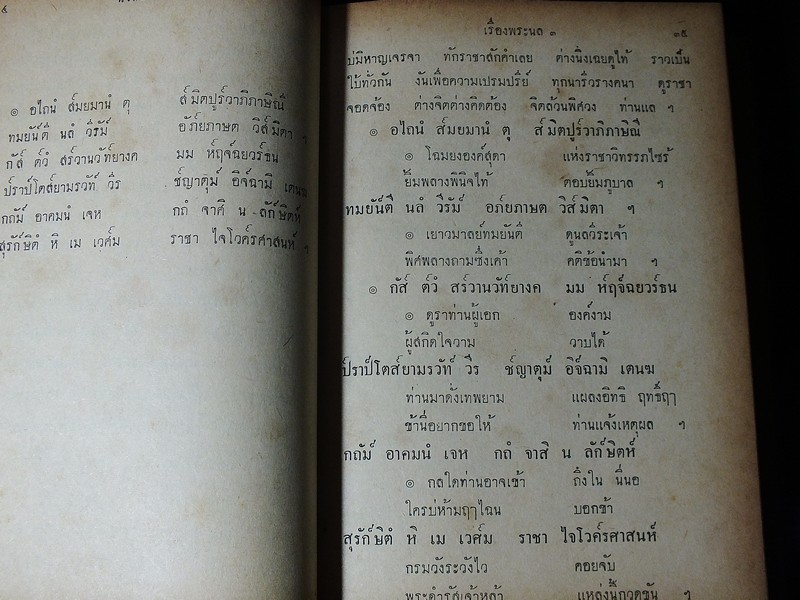 ๑ อไถนํ ส๎มยมานํ ตุ ส๎มิตปูร๎วาภิภาษิณี
ทมยัน๎ตี นลํ วีรัม๎ อภ๎ยภาษต วิส๎มิตา ฯ
กัส๎ ต๎วํ สร๎วานวัท๎ยางค มม ห๎ฤจ๎ฉยวร๎ธน
ป๎ราป๎โตส๎ยามรวัท๎ วีร ช๎ญาตุม๎ อิจ๎ฉามิ เตนฆ
กถัม๎ อาคมนํ เจห กถํ จาสิ น ลัก๎ษิตห๎
สุรัก๎ษิตํ หิ เม เวศ๎ม ราชา ไจโวค๎รศาสนห๎ ฯ
เรื่องพระนล ๓ ๓๕
บ่มีหาญเจรจา ทักราชาสักคำเลย ต่างนิ่งเฉยดูไท้ ราวเป็น
ใบ้ทั่วกัน งันเพื่อความเปรมปรีย์ ทุกนารีวรางคนา ดูราชา
จอดจ้อง ต่างจิตต่างคิดต้อง จิตล้วนพิศวง ท่านแล ฯ
๑ อไถนํ ส๎มยมานํ ตุ ส๎มิตปูร๎วาภิภาษิณี
๑ โฉมยงองค์สุดา แห่งราชาวิทรรภไซร้
ยิ้มพลางพินิจไท้ ตอบยิ้มภูบาล ฯ
ทมยัน๎ตี นลํ วีรัม๎ อภ๎ยภาษต วิส๎มิตา ฯ
๑ เยาวมาลย์ทมยันตี ดูนลวีระเจ้า
พิศพลางถามซึ่งเค้า คดีข้อนำมา ฯ
๑ กัส๎ ต๎วํ สร๎วานวัท๎ยางค มม ห๎ฤจ๎ฉยวร๎ธน
๑ ดูราท่านผู้เอก องค์งาม
ผู้สกิดใจวาม วาบได้
ป๎ราป๎โตส๎ยามรวัท๎ วีร ช๎ญาตุม๎ อิจ๎ฉามิ เตนฆ
ท่านมาดั่งเทพยาม แผลงอิทธิ ฤทธิ์ฤๅ
ข้านี้อยากขอให้ ท่านแจ้งเหตุผล ฯ
กถัม๎ อาคมนํ เจห กถํ จาสิ น ลัก๎ษิตห๎
๑ กลใดท่านอาจเข้า ถึงใน นี่นอ
ใครบ่ห้ามฤๅไฉน บอกข้า
สุรัก๎ษิตํ หิ เม เวศ๎ม ราชา ไจโวค๎รศาสนห๎
กรมวังระวังไว คอยจับ
พระดำรัสเจ้าหล้า แหล่งนี้กวดขัน ฯ